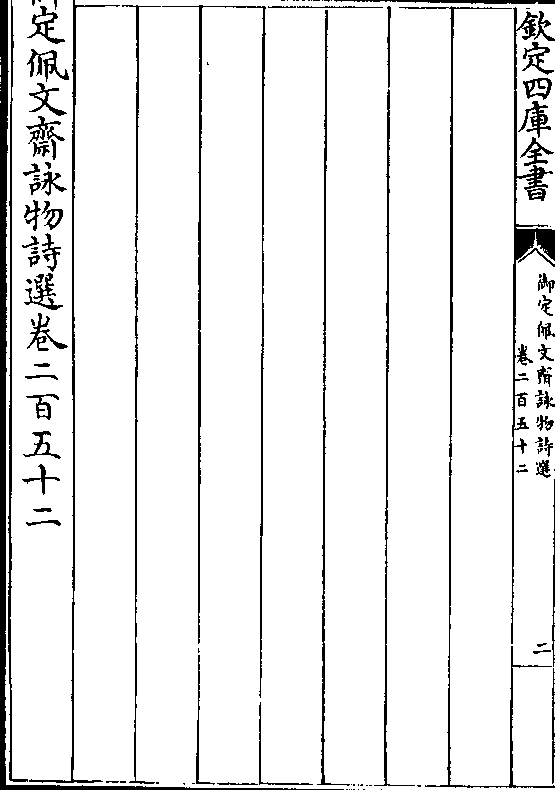 欽定四庫全書
御定佩文齋詠物詩選
卷二百五十二
二
御定佩文齋詠物詩選卷二百五十二